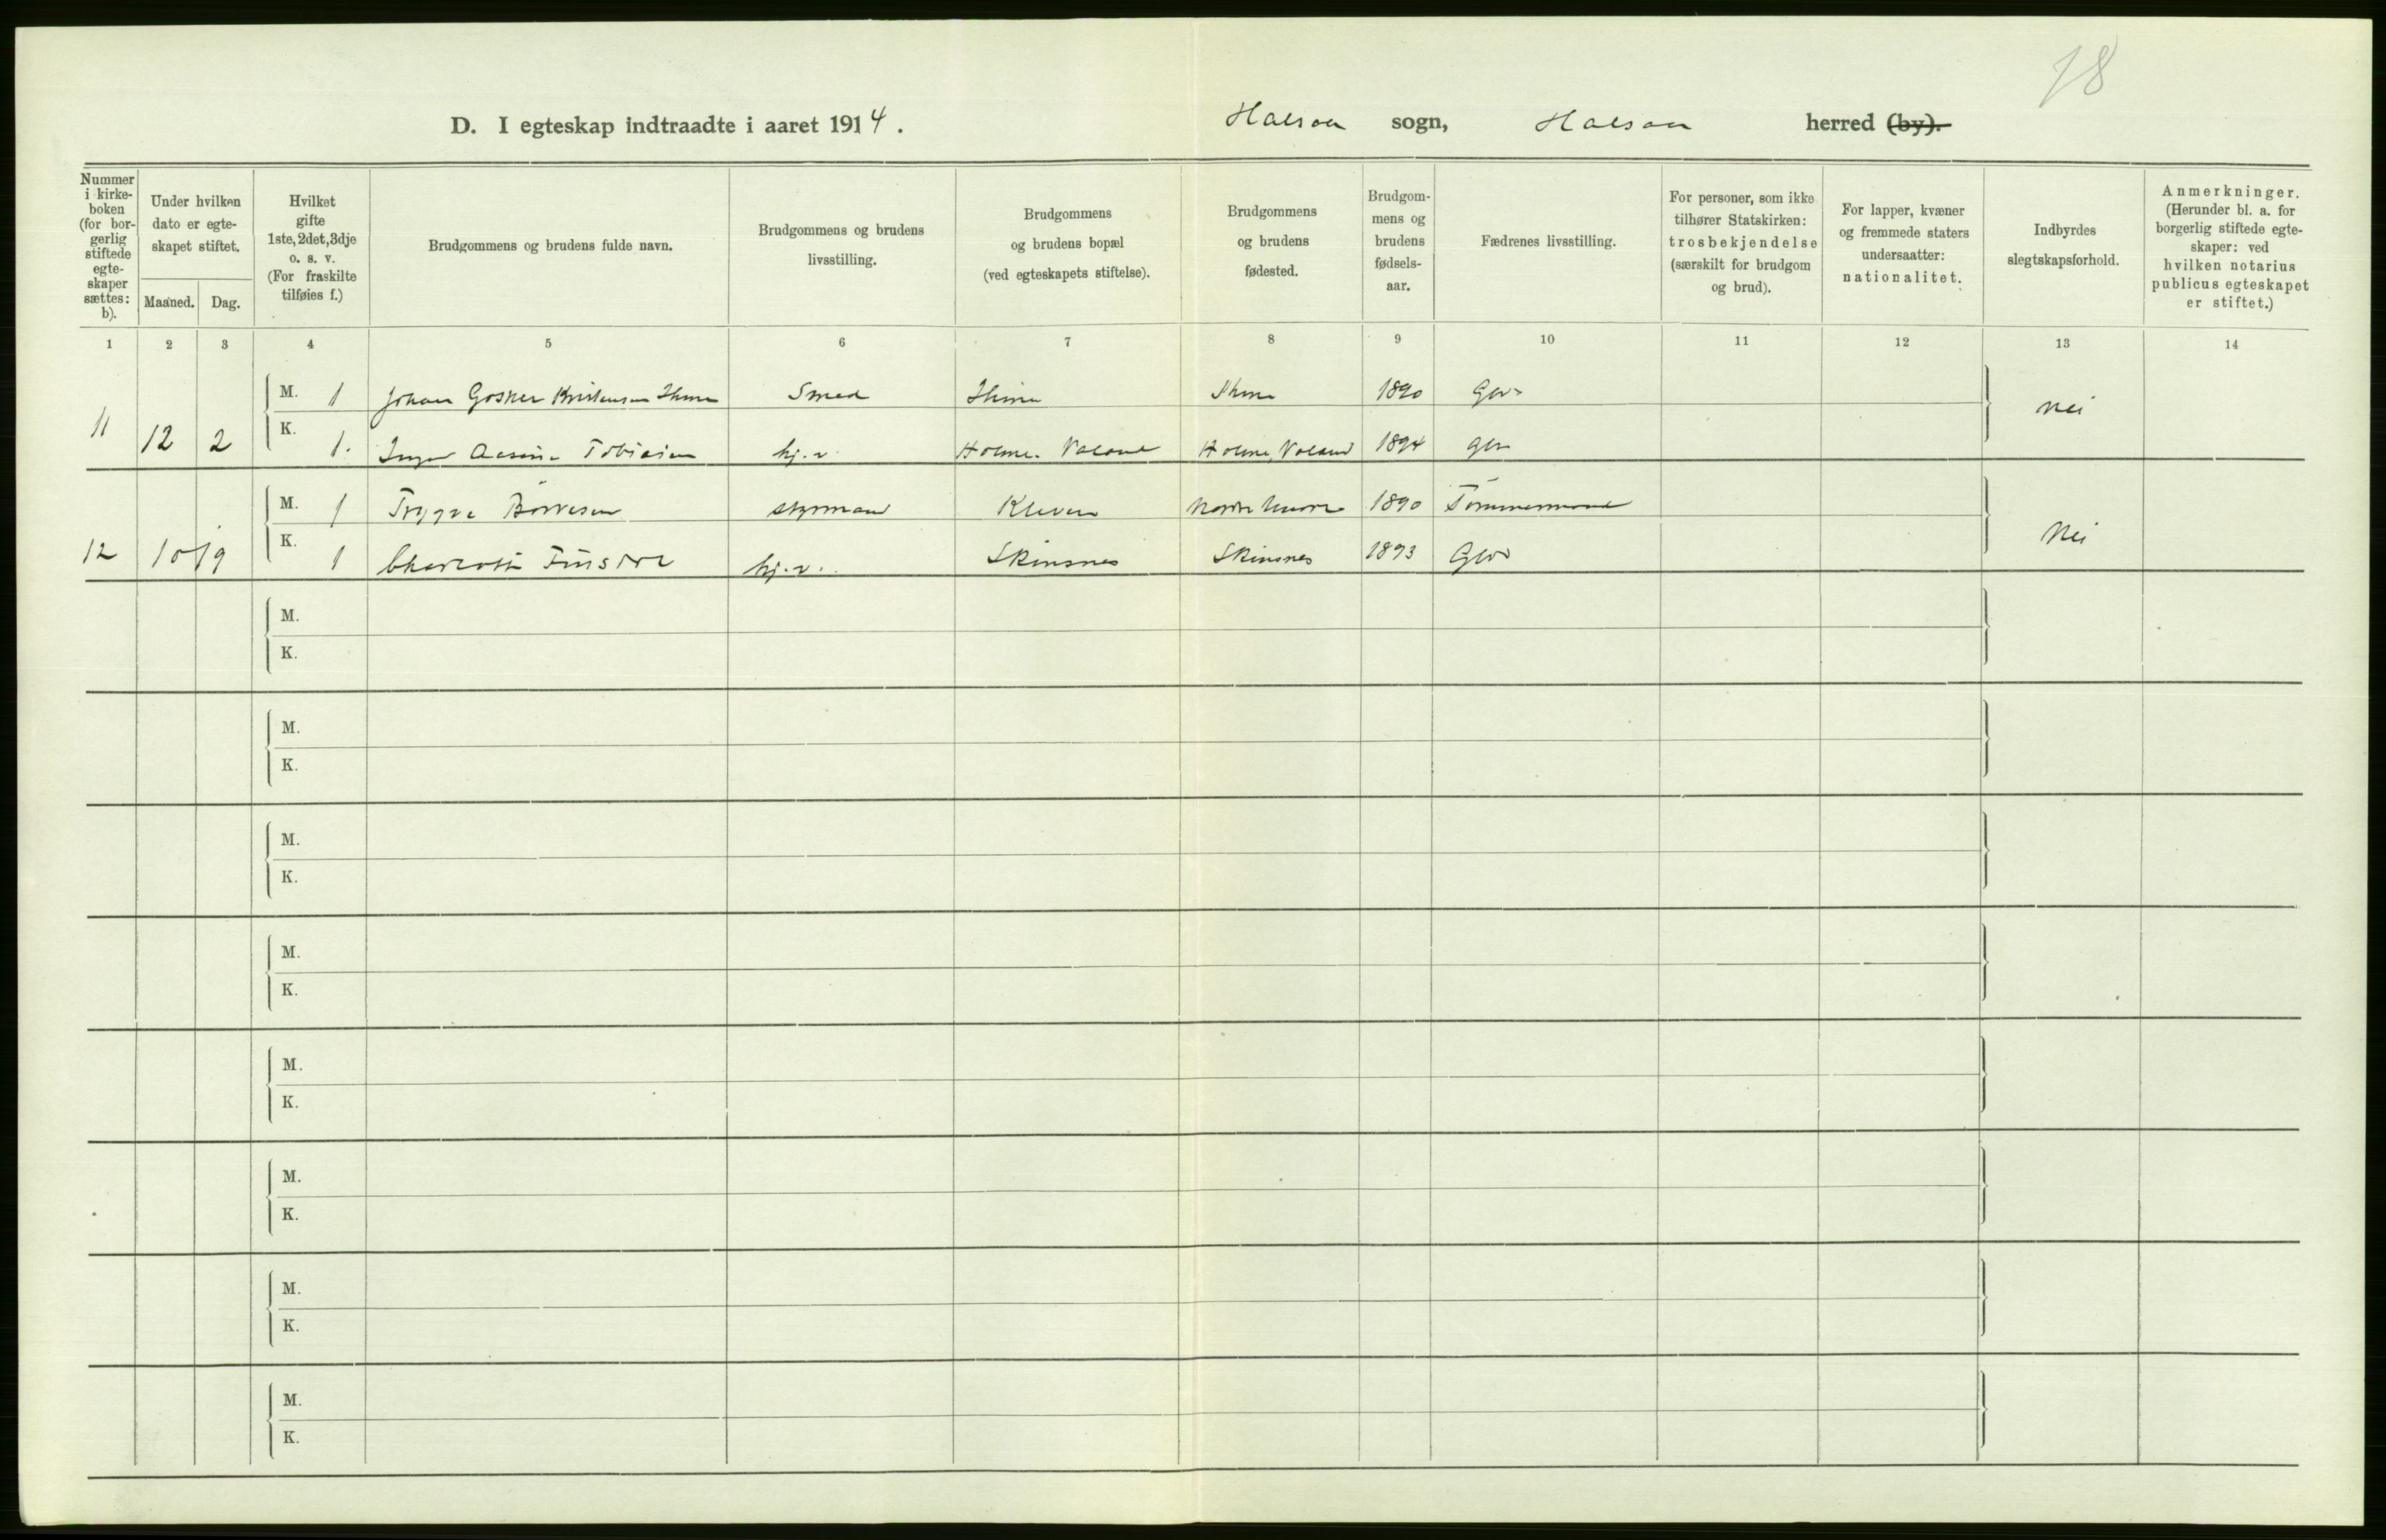 78
D. I egteskap indtraadte i aaret 1914. Halsaa sogn, Halsaa herred (by).
Nummer i kirke-boken (for bor-gerlig stiftede egte-skaper sættes: b).
Under hvilken dato er egte-skapet stiftet.
Maaned. Dag.
Hvilket gifte 1ste, 2det, 3dje o. s. v. (For fraskilte tilføies f.)
Brudgommens og brudens fulde navn.
Brudgommens og brudens livsstilling.
Brudgommens og brudens bopæl (ved egteskapets stiftelse).
Brudgommens og brudens fødested.
Brudgom-mens og brudens fødsels-aar.
Fædrenes livsstilling.
For personer, som ikke tilhører Statskirken: trosbekjendelse (særskilt for brudgom og brud).
For lapper, kvæner og fremmede staters undersaatter: nationalitet.
Indbyrdes slegtskapsforhold.
Anmerkninger. (Herunder bl. a. for borgerlig stiftede egte-skaper: ved hvilken notarius publicus egteskapet er stiftet.)
1 2 3 4 5 6 7 8 9 10 11 12 13 14
M. 1 Johan Kristensen Smed 1890 Nei
11 12 2 K. 1. Aasine Tobiasen hj. v. Holme. Valand Holme, Valand 1894
M. 1 Trygve Børresen styrmand Kleven 1890 Tømmermand Nei
12 10/9 K. 1 Charlotte hj. v. Skinsnes Skinsnes 1893
M.
K.
M.
K.
M.
K.
M.
K.
M.
K.
M.
K.
M.
K.
M.
K.